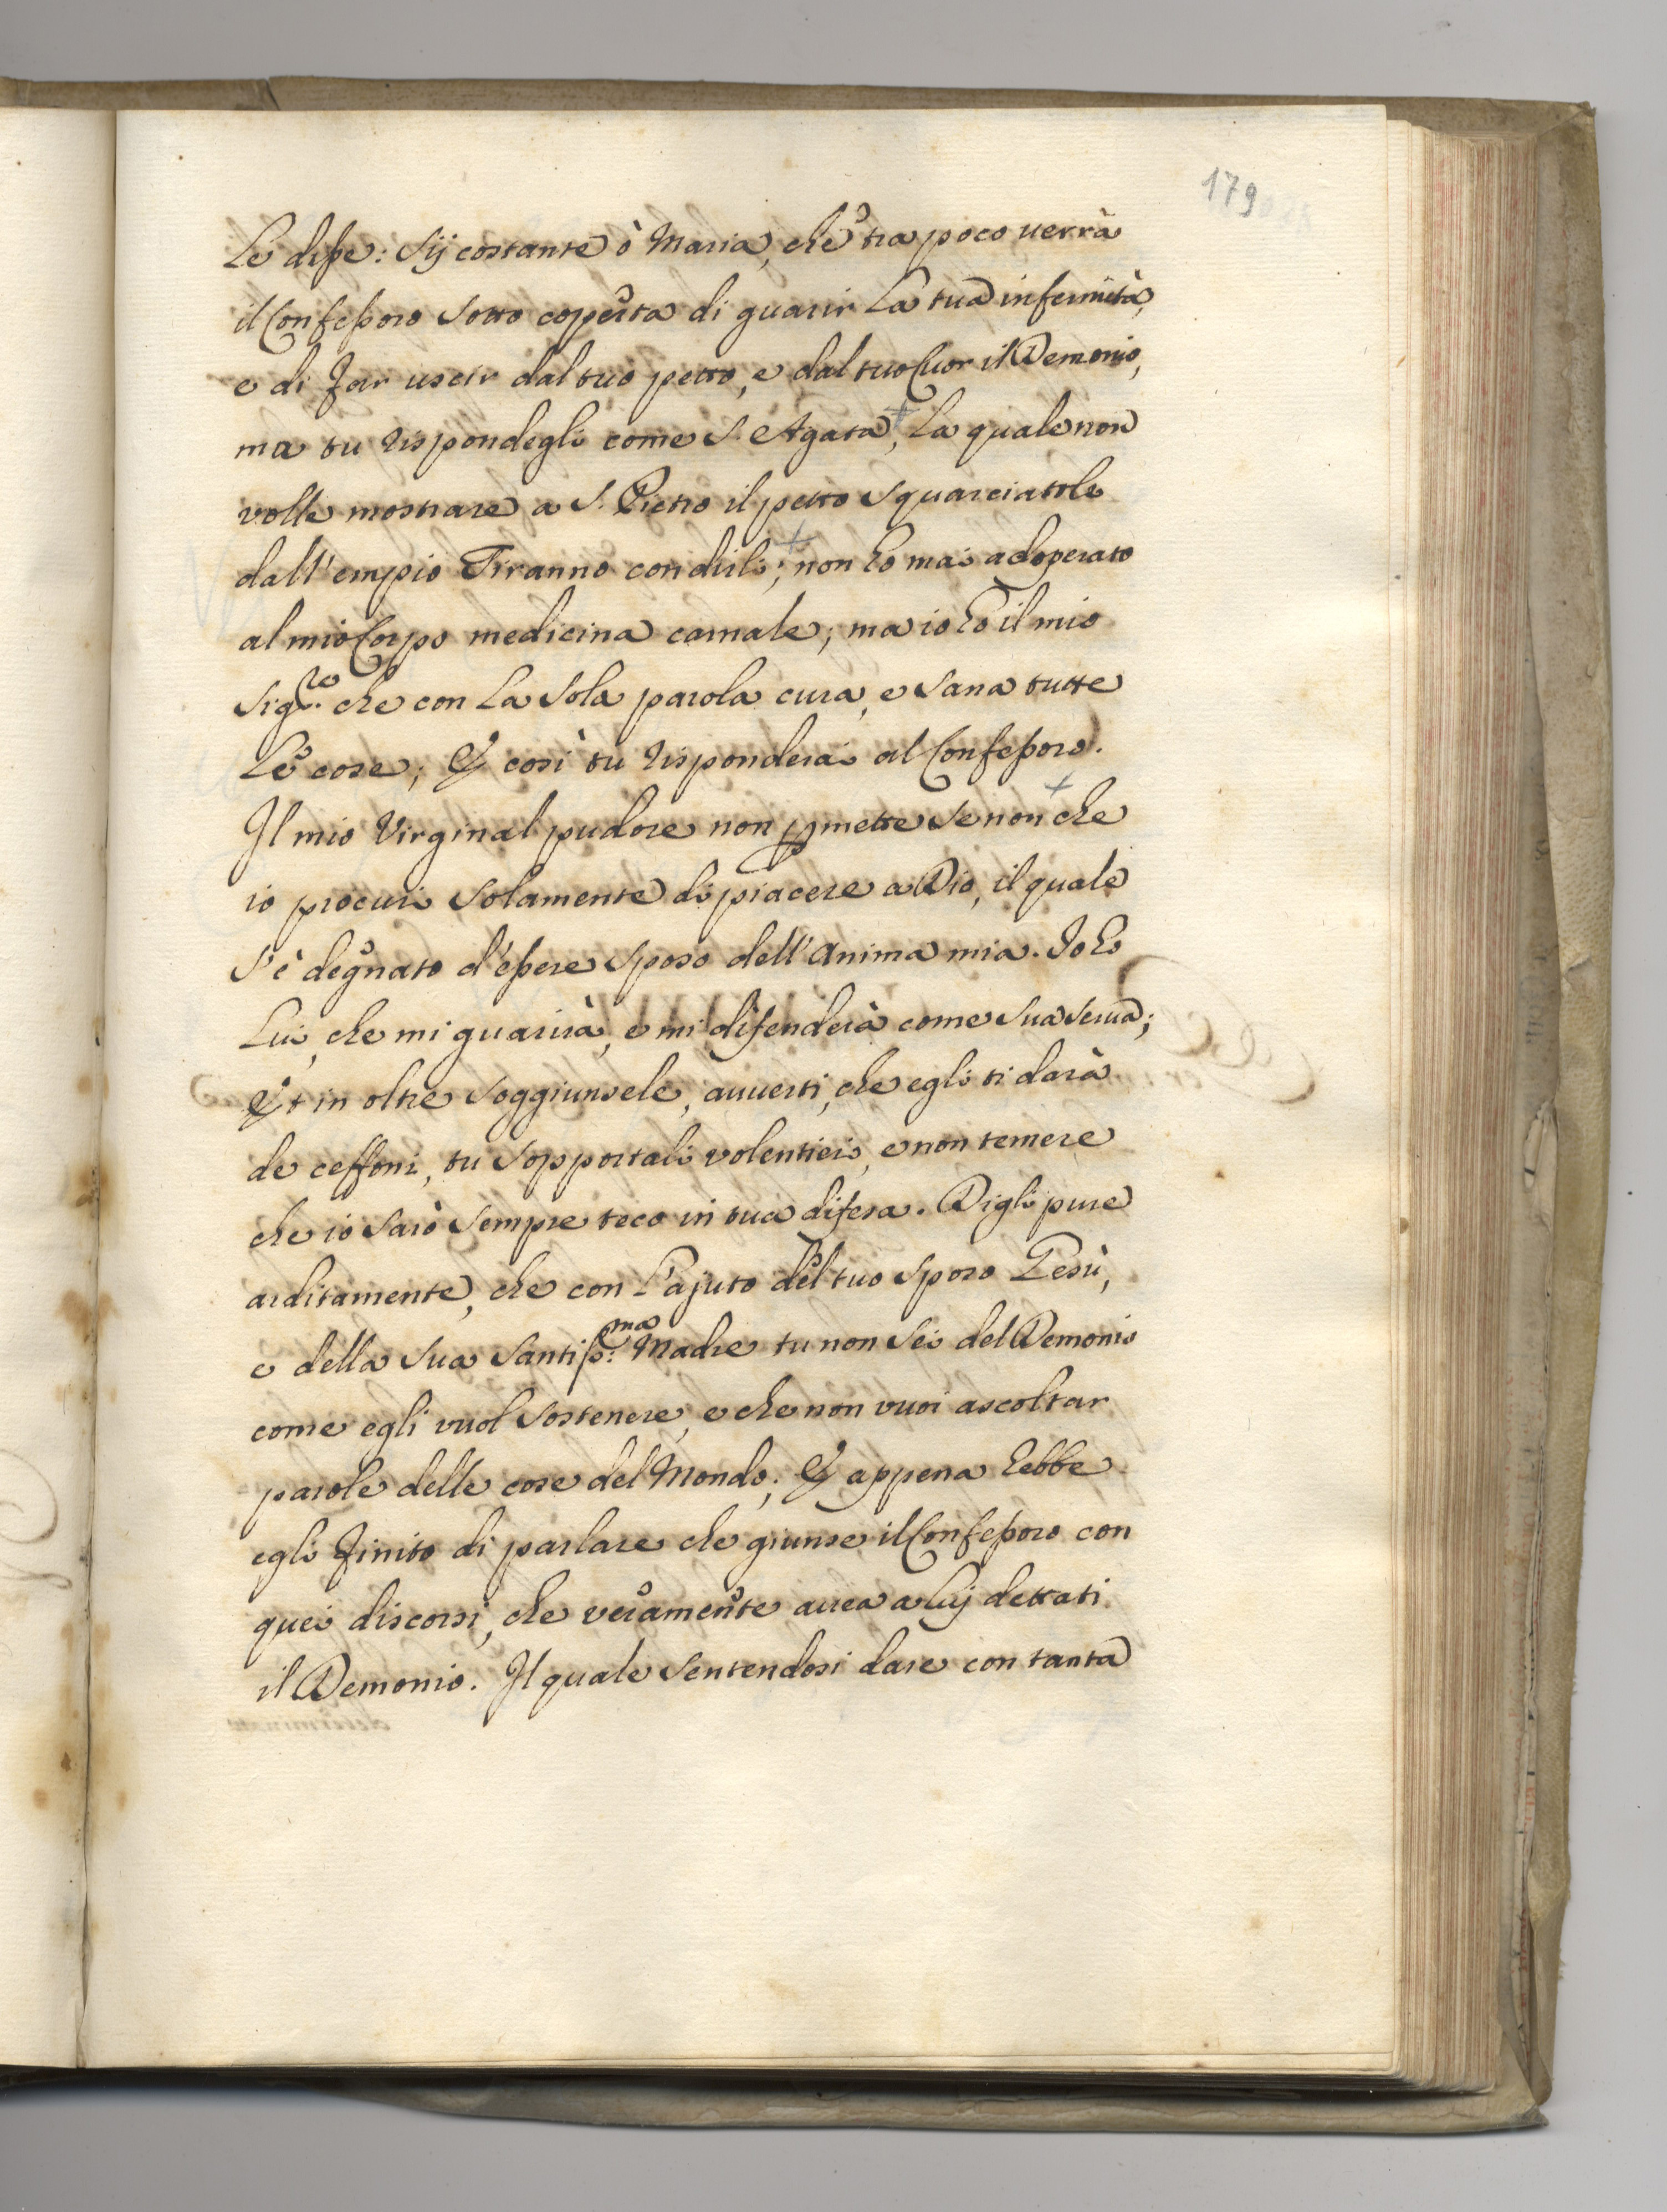 179
Le disse: Sij costante ò Maria, che tra poco uerrà
il Confessoro sotto coperta di guarir la tua infermità,
e di far uscir dal tuo petto, e dal tuo Cuor il Demonio,
ma tu rispondegli come S. Agata, la quale non
volle mostrare a S. Pietro il petto squarciatole
dall'empio Tiranno con dirli; non ho mai adoperato
al mio Corpo medicina carnale; ma io hò il mio
Sig.re che con la sola parola cura, e sana tutte
le cose; & così tu risponderai al Confessoro.
Il mio Virginal pudore non pmette se non che
io procuri solamente di piacere a Dio, il quale
s'è degnato d'essere sposo dell'Anima mia. Io ho
Lui, che mi guarirà, e mi difenderà come sua serua;
Et in oltre soggiunsele, auuerti, che egli ti darà
de ceffoni, tu sopportali volentieri, e non temere
che io sarò sempre teco in tua difesa. Digli pure
arditamente, che con l'ajuto del tuo sposo Gesù,
e della sua Santiss:ma Madre tu non sei del Demonio
come egli vuol sostenere, e che non vuoi ascoltar
parole delle cose del Mondo; & appena hebbe
egli finito di parlare che giunse il Confessoro con
quei discorsi, che veramente auea a lui dettati
il Demonio. Il quale sentendosi dare con tanta